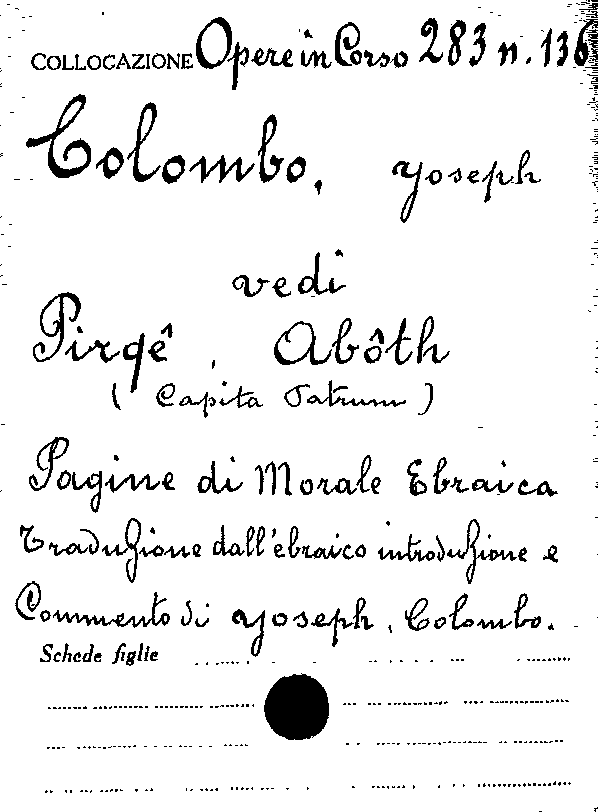 COLLOCAZIONE Opere in Corso 283 n. 136
Colombo, Yoseph
vedi
Pirqê, Abôth
( Capita Patrum )
Pagine di Morale Ebraica
Traduzione dall'ebraico introduzione e
Commento di Yoseph, Colombo.
Schede figlie